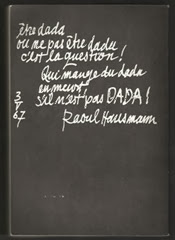 être dada
ou ne pas être dada
c'est la question!
Qui mange du dada
en meurt
s'il n'est pas DADA!
3
7
67
Raoul Hausmann